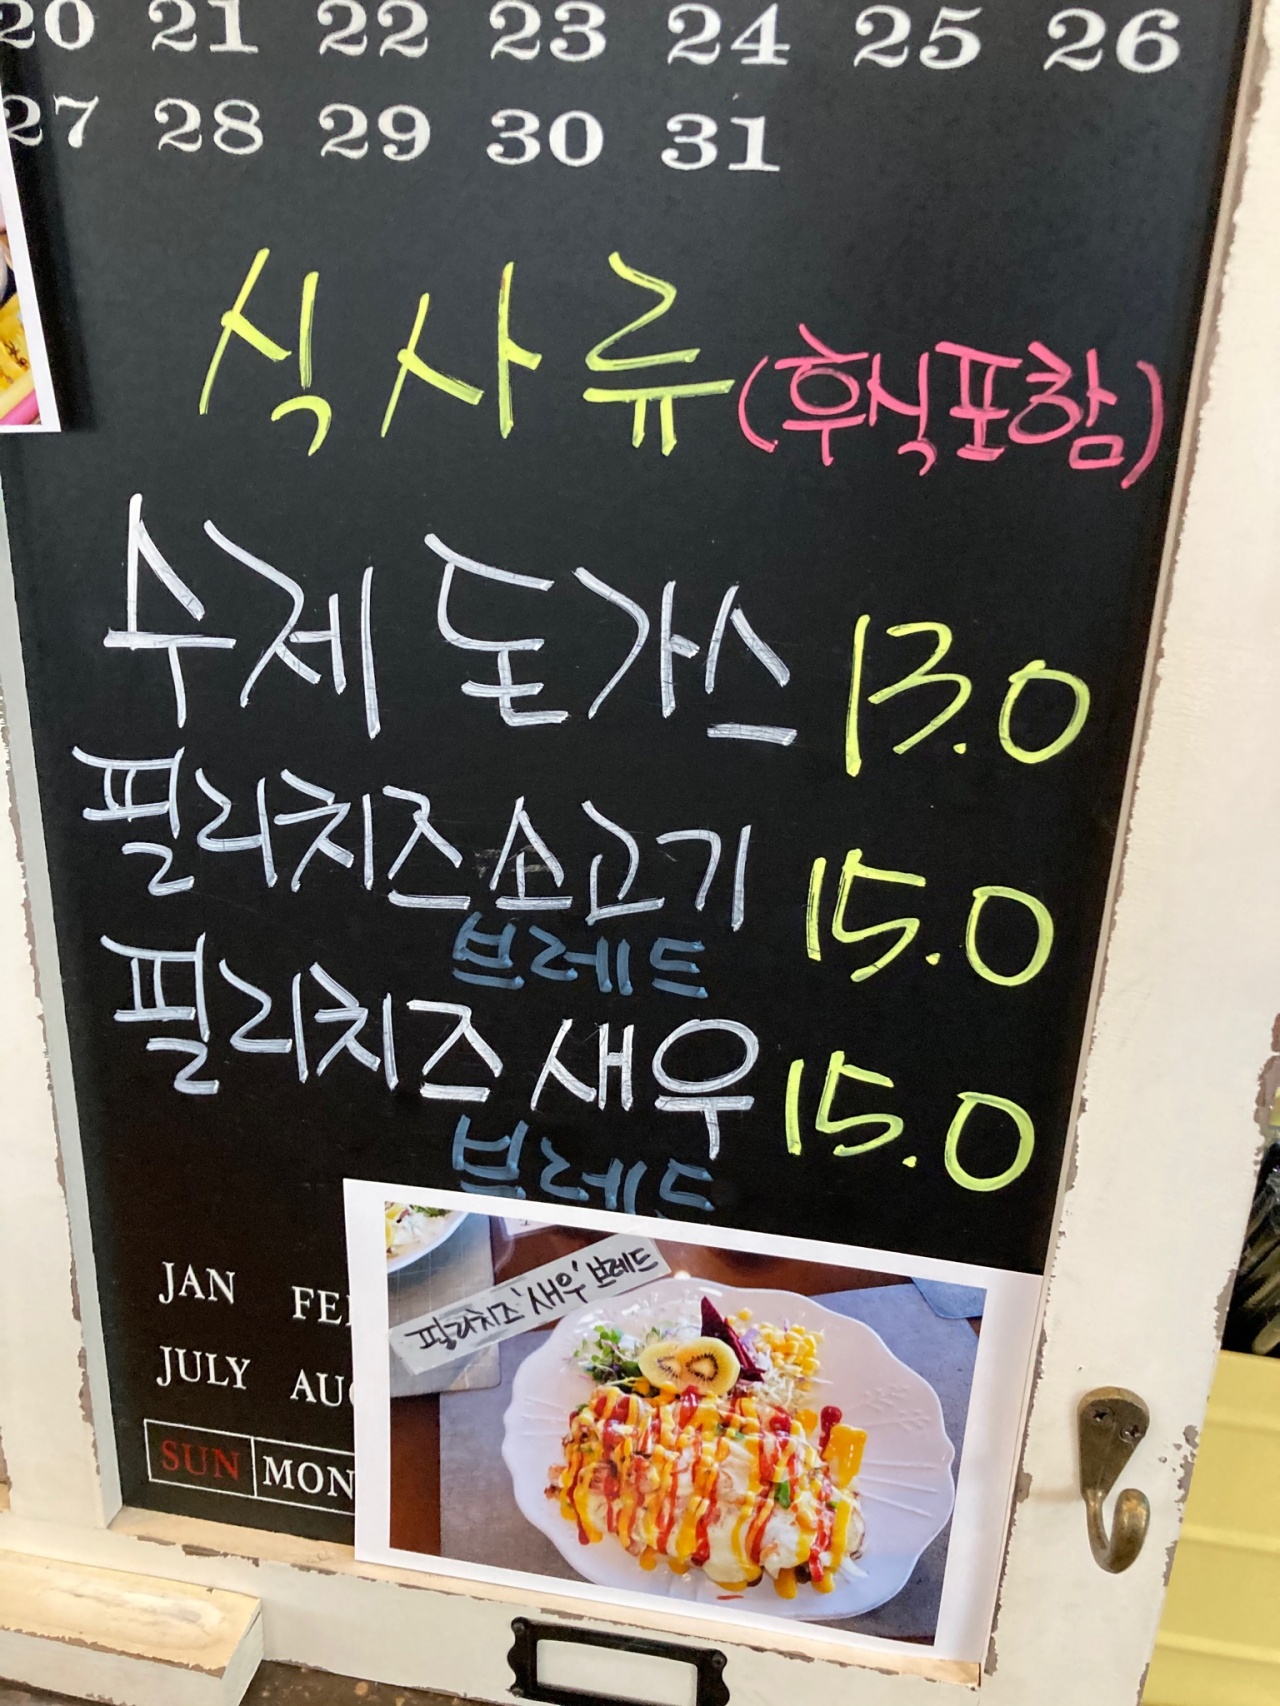 20 21 22 23 24 25 26
27 28 29 30 31
식사류 (후식포함)
수제 돈가스 13.0
필라치즈소고기 15.0
브레드
필라치즈 새우 15.0
브레드
JAN
JULY
SUN MON
필라치즈 '새우' 브레드